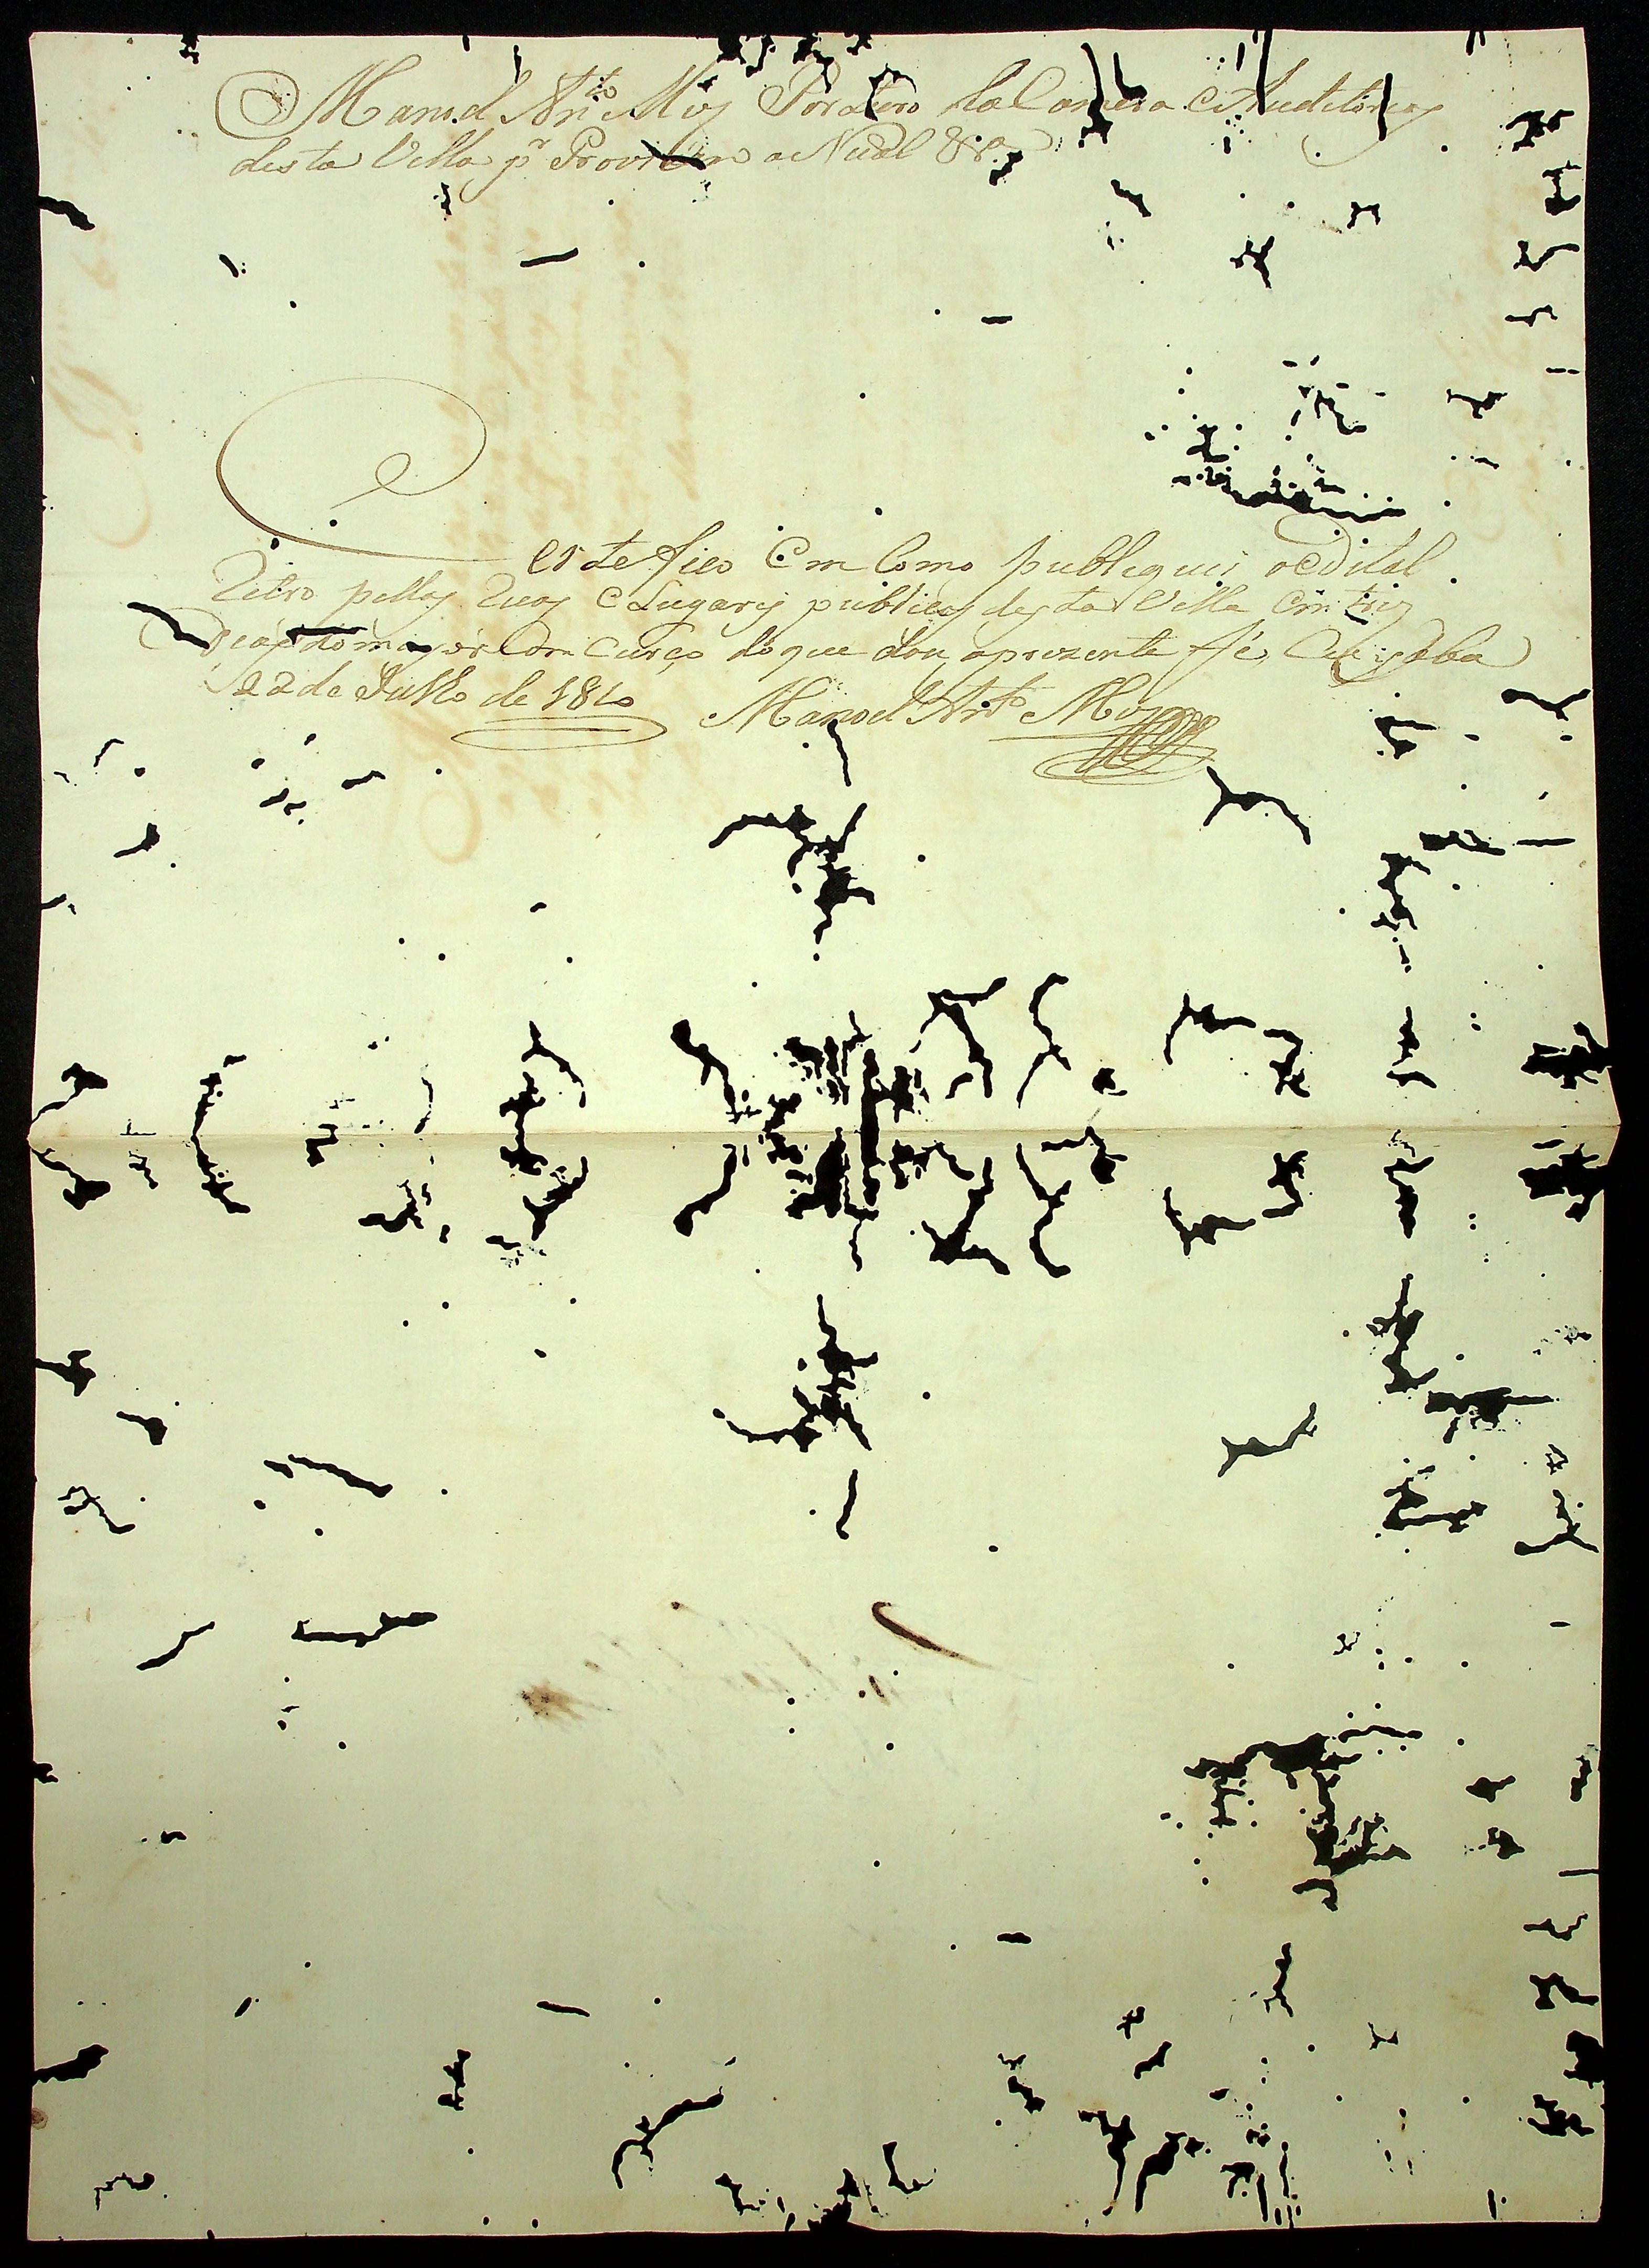 Manoel Ant.to Miz Porteiro da Camera e Auditorios
desta Villa p.r Provizam anNual &.a
Certefico Em Como publiquei o Edital
Retro pellas Ruas e Lugares publicos desta Villa Em
mayor Con Curço do que dou aprezente fé Cuyaba
22 de Julho de 1810 Manoel Ant.o Miz